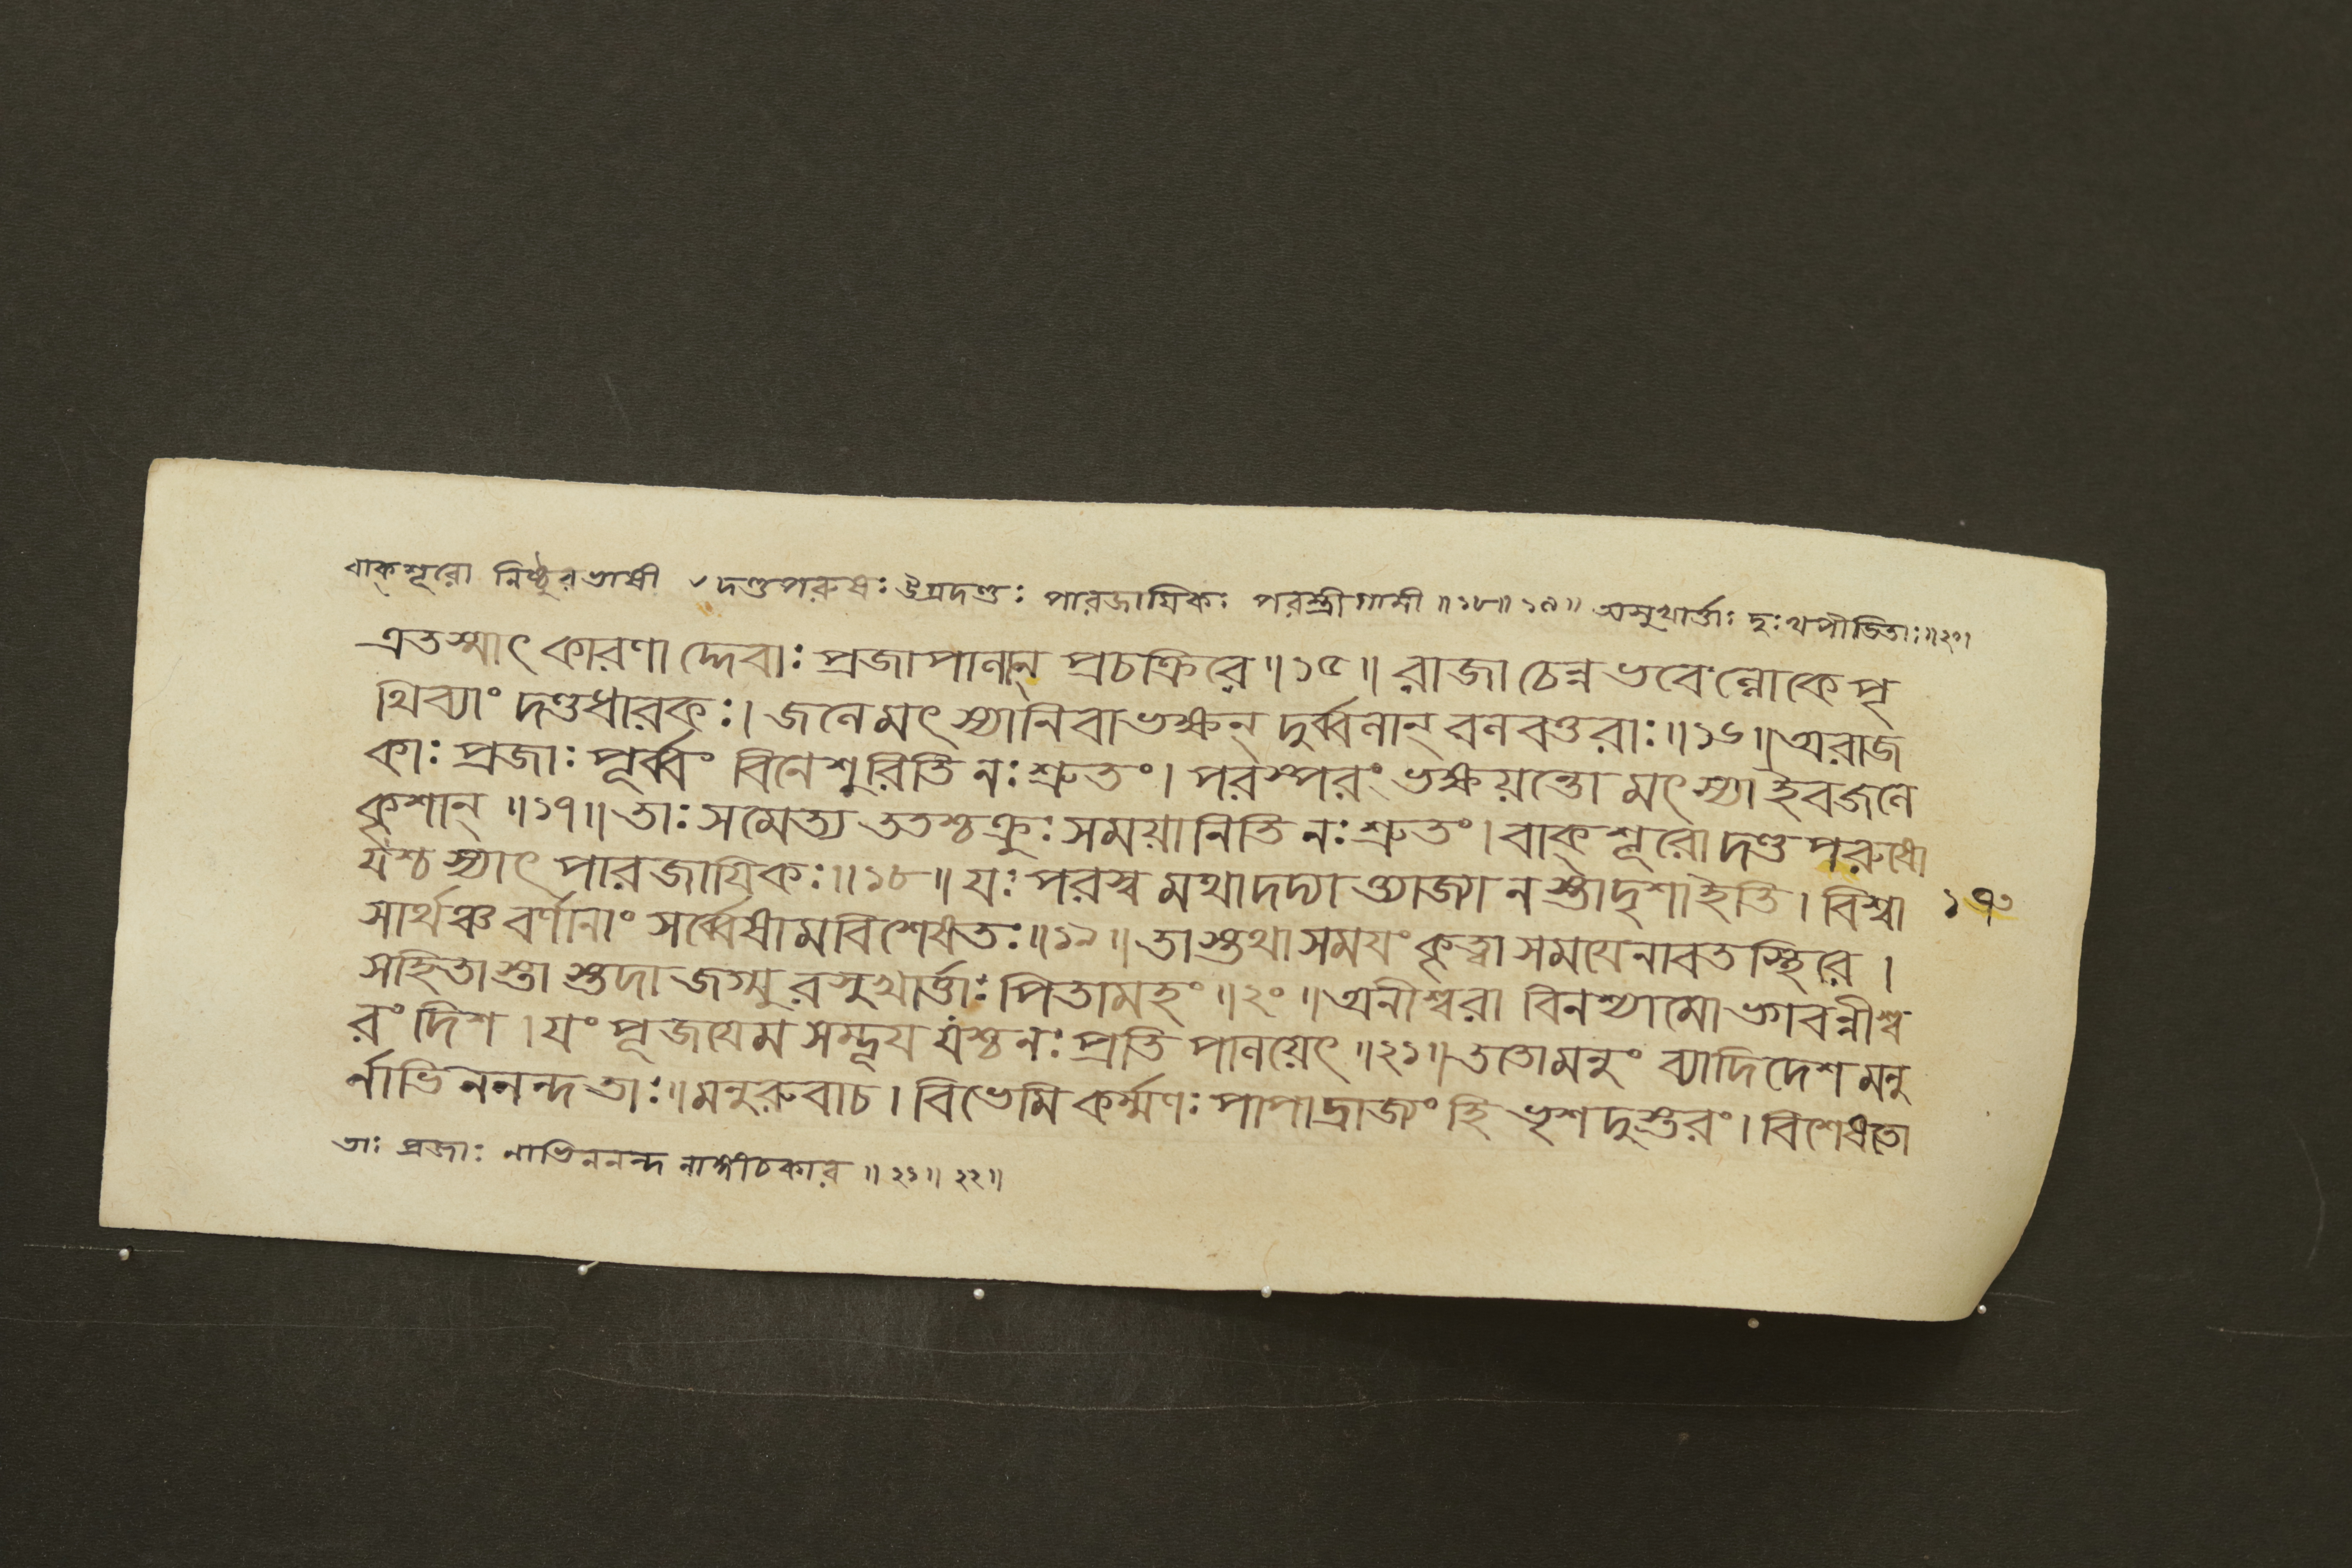 বাক্শূরো নিষ্ঠুরভাষী দণ্ডপরুষঃ উগ্রদণ্ডঃ পারজায়িকঃ পরস্ত্রীগামী ॥১৮॥১৯॥ অসুখার্ত্তাঃ দুঃখপীডিতাঃ॥২০।
এতস্মাৎ কারণাদ্দেবাঃ প্রজাপালান্ প্রচক্রিরে ॥১৫॥ রাজা চেন্ন ভবেল্লোকে পৃ
থিব্যাং দণ্ডধারকঃ। জলে মৎস্যানিবাভক্ষন্ দুর্ব্বলান্ বলবত্তরাঃ॥১৬॥ অরাজ
কাঃ প্রজাঃ পূর্ব্বং বিনেশুরিতি নঃ শ্রুতং। পরস্পরং ভক্ষয়ন্তো মৎস্যা ইব জলে
কৃশান্ ॥১৭॥ তাঃ সমেত্য ততশ্চক্রুঃ সময়ানিতি নঃ শ্রুতং। বাক্শূরো দণ্ডপরুষো
যশ্চ স্যাৎ পারজায়িকঃ॥১৮॥ যঃ পরস্বমথাদদ্যাত্ত্যাজ্যা নস্তাদৃশা ইতি। বিশ্বা
১৭০
সার্থঞ্চ বর্ণানাং সর্ব্বেষামবিশেষতঃ॥১৯॥ তাস্তথা সময়ং কৃত্বা সময়েনাবতস্থিরে।
সহিতাস্তাস্তদা জগ্মুরসুখার্ত্তাঃ পিতামহং ॥২০॥ অনীশ্বরা বিনশ্যামো ভগবন্নীশ্ব
রং দিশ। যং পূজয়েম সম্ভূয় যশ্চ নঃ প্রতিপালয়েৎ ॥২১॥ ততো মনুং ব্যাদিদেশ মনু
র্নাভিননন্দ তাঃ॥ মনুরুবাচ। বিভেমি কর্ম্মণঃ পাপাদ্রাজ্যং হি ভৃশদুস্তরং। বিশেষতো
তাঃ প্রজাঃ নাভিননন্দ নাঙ্গীচকার ॥২১॥২২॥